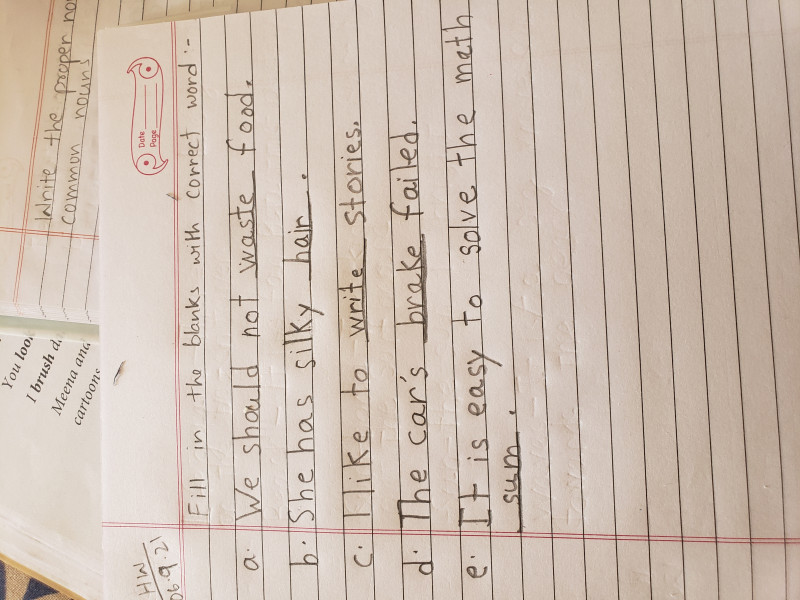 Write the proper
common nouns
You
I brush
Meena and
cartoons
Date
Page
HW
06.9.21
Fill in the blanks with correct word :-
a. We should not waste food.
b. She has silky hair.
c. I like to write stories.
d. The car's brake failed.
e. It is easy to solve the math
sum.